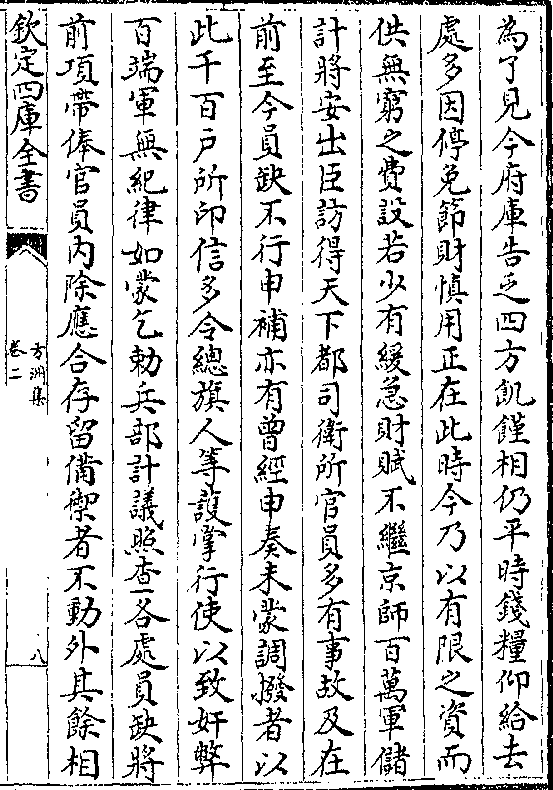 為了見今府庫告乏四方飢饉相仍平時錢糧仰給去
處多因停免節財慎用正在此時今乃以有限之資而
供無窮之費設若少有緩急財賦不繼京師百萬軍儲
計將安出臣訪得天下都司衛所官員多有事故及在
前至今員缺不行申補亦有曾經申奏未蒙調撥者以
此千百戸所印信多令總旗人等䕶掌行使以致奸弊
百端軍無紀律如蒙乞勅兵部計議照查各處員缺將
前項帶俸官員内除應合存留備禦者不動外其餘相
欽定四庫全書
方洲集
卷二
八